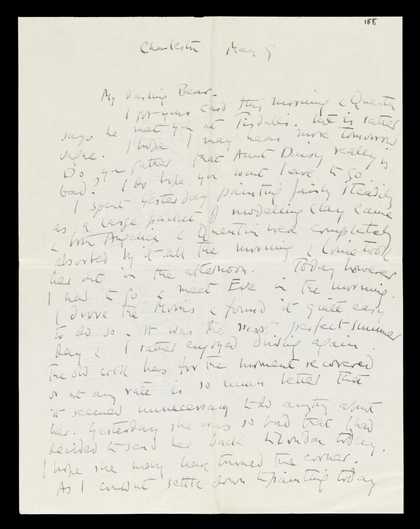 188
Charleston May 9
My darling Bear.
I got your card this morning & Quentin
says he met you at Tisdalls. but is rather
vague. I hope I may hear more tomorrow
Do you gather that Aunt Daisy really is
bad? I do hope you wont have to go.
I spent yesterday painting fairly steadily
as a large packet of modelling clay came
& both Angelica & Quentin were completely
absorbed by it all the morning & Louie took
her out in the afternoon. Today however
I had to go & meet Eve in the morning.
I drove the Morris & found it quite easy
to do so. It was the most perfect summer
day & I rather enjoyed driving again.
The old cook has for the moment recovered
or at any rate is so much better that
it seemed unnecessary to do anything about
her. Yesterday she was so bad that I had
decided to send her back to London today.
I hope she may have turned the corner.
As I couldnt settle down to painting today